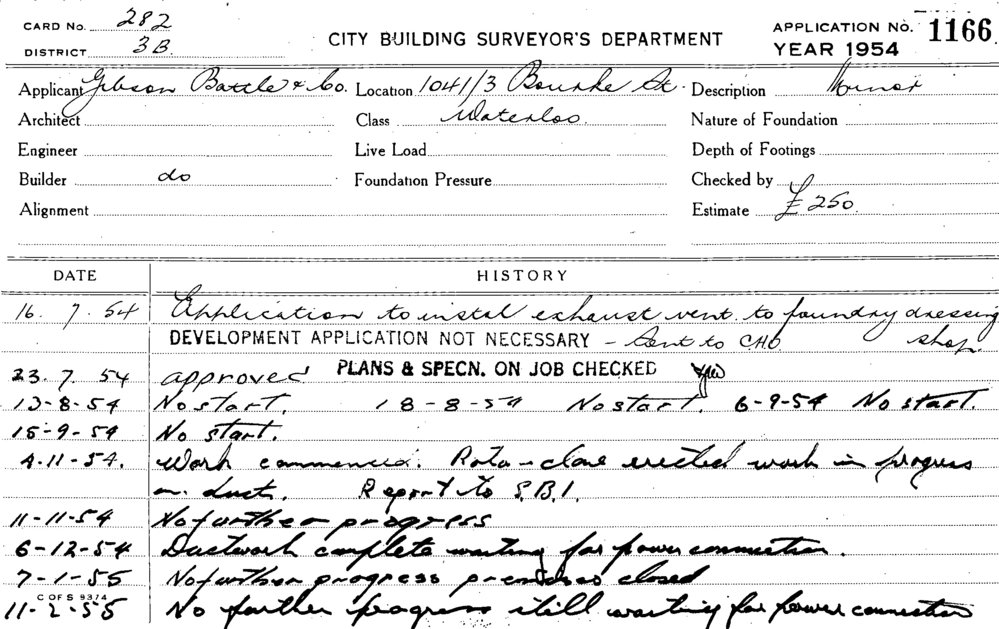 CARD No. 282
DISTRICT 3B.
CITY BUILDING SURVEYOR'S DEPARTMENT
APPLICATION No. 1166
YEAR 1954
Applicant Gibson Battle & Co. Location 1041/3 Bourke St. Description Minor
Architect Class Waterloo Nature of Foundation
Engineer Live Load Depth of Footings
Builder do Foundation Pressure Checked by
Alignment Estimate £250.
DATE HISTORY
16. 7. 54 Application to instal exhaust vent to foundry dressing
DEVELOPMENT APPLICATION NOT NECESSARY - Sent to CHO shop
23. 7. 54 approved PLANS & SPECN. ON JOB CHECKED
13-8-54 No start. 18-8-54 No start. 6-9-54 No start.
15-9-54 No start.
4-11-54. Work commenced. Roto-clone erected work in progress
on duct. Report to S.B.I.
11-11-54 No further progress
6-12-54 Ductwork complete waiting for power connection.
7-1-55 No further progress premises closed
C OF S 9374
11-2-55 No further progress still waiting for power connection